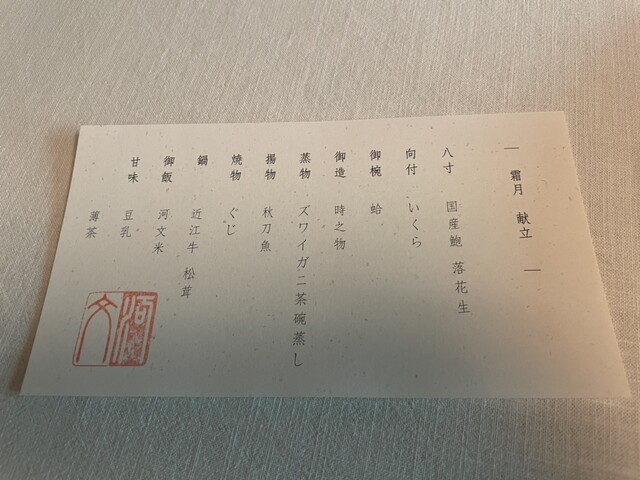 ― 霜月 献立 ―
八寸 国産鮑 落花生
向付 いくら
御椀 蛤
御造 時之物
蒸物 ズワイガニ茶碗蒸し
揚物 秋刀魚
焼物 ぐじ
鍋 近江牛 松茸
御飯 河文米
甘味 豆乳
薄茶
河文